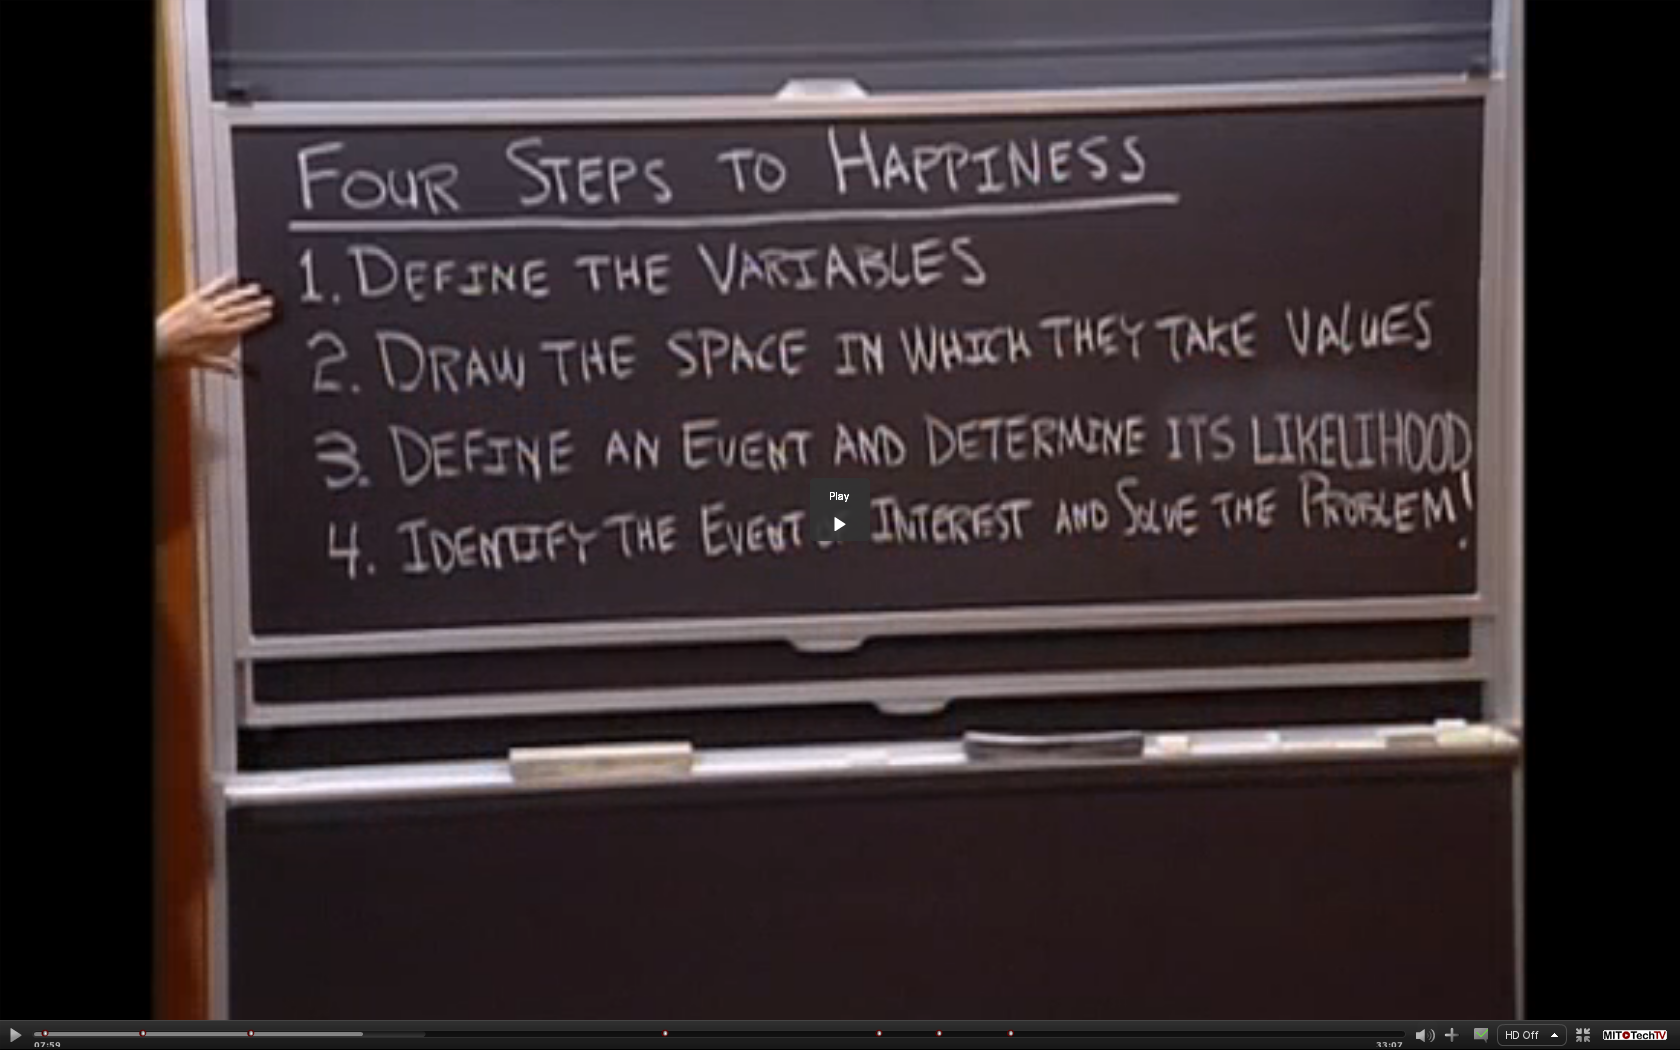 FOUR STEPS TO HAPPINESS
1. DEFINE THE VARIABLES
2. DRAW THE SPACE IN WHICH THEY TAKE VALUES
3. DEFINE AN EVENT AND DETERMINE ITS LIKELIHOOD
4. IDENTIFY THE EVENT INTEREST AND SOLVE THE PROBLEM!
Play
07:59
33:07
HD Off
MIT TechTV